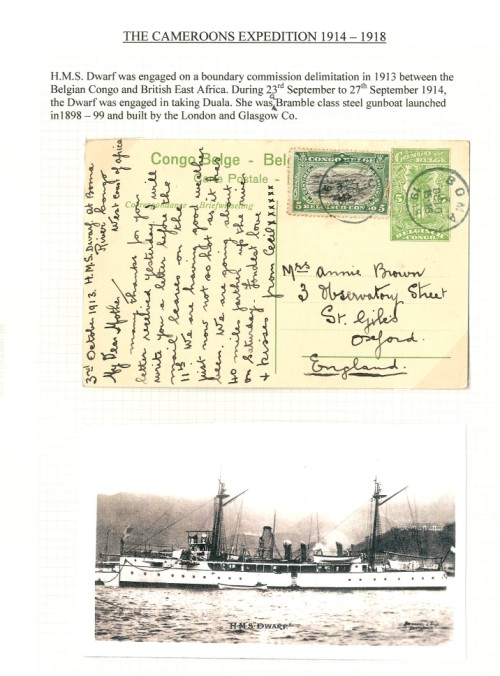 THE CAMEROONS EXPEDITION 1914 – 1918
H.M.S. Dwarf was engaged on a boundary commission delimitation in 1913 between the
Belgian Congo and British East Africa. During 23rd September to 27th September 1914,
the Dwarf was engaged in taking Duala. She was a Bramble class steel gunboat launched
in1898 – 99 and built by the London and Glasgow Co.
Congo Belge -
Carte Postale -
Correspondance Briefwisseling
CONGO BELGE
5 5
BELGISCH CONGO
CONGO BELGE
5
BELGISCH
CONGO
BOMA
3rd October 1913. H.M.S. Dwarf at Boma
River Congo
West Coast of Africa
My Dear Mother
many thanks for your
letter received yesterday. I will
write you a letter before the
mail leaves on the
11th. We are having good weather
just now not so hot as it has
been. We are going about
40 miles further up the river
on Saturday. Fondest love
& kisses from Cecil xxxxxx
Mrs Annie Brown
3 Observatory Street
St. Giles
Oxford.
England.
H.M.S. DWARF